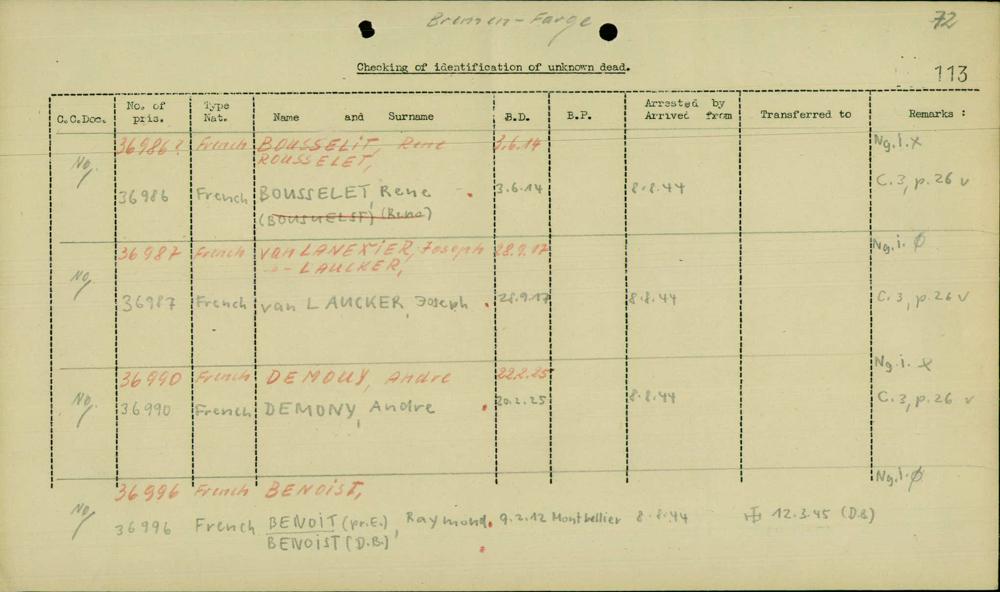 Bremen-Farge
72
Checking of identification of unknown dead.
113
C.C.Doc. No. of pris. Type Nat. Name and Surname B.D. B.P. Arrested by Arrived from Transferred to Remarks :
36986? French BOUSSELIT, Rene 3.6.14 Ng.i.x
ROUSSELET,
No,
36986 French BOUSSELET, Rene 3.6.14 8.8.44 C.3, p.26 v
(Rene)
36987 French van LANEXIER, Joseph 28.9.17 Ng.i. ∅
-"- LAUCKER,
No,
36987 French van LAUCKER, Joseph 28.9.17 8.8.44 C.3, p.26 v
Ng.i. x
36990 French DEMOUY, Andre 22.2.25
No,
36990 French DEMONY, Andre 20.2.25 8.8.44 C.3, p.26 v
Ng.i. ∅
36996 French BENOIST,
No,
36996 French BENOIT (pr.E.), Raymond 9.2.12 Montbellier 8.8.44 12.3.45 (D.B.)
BENOIST (D.B.)